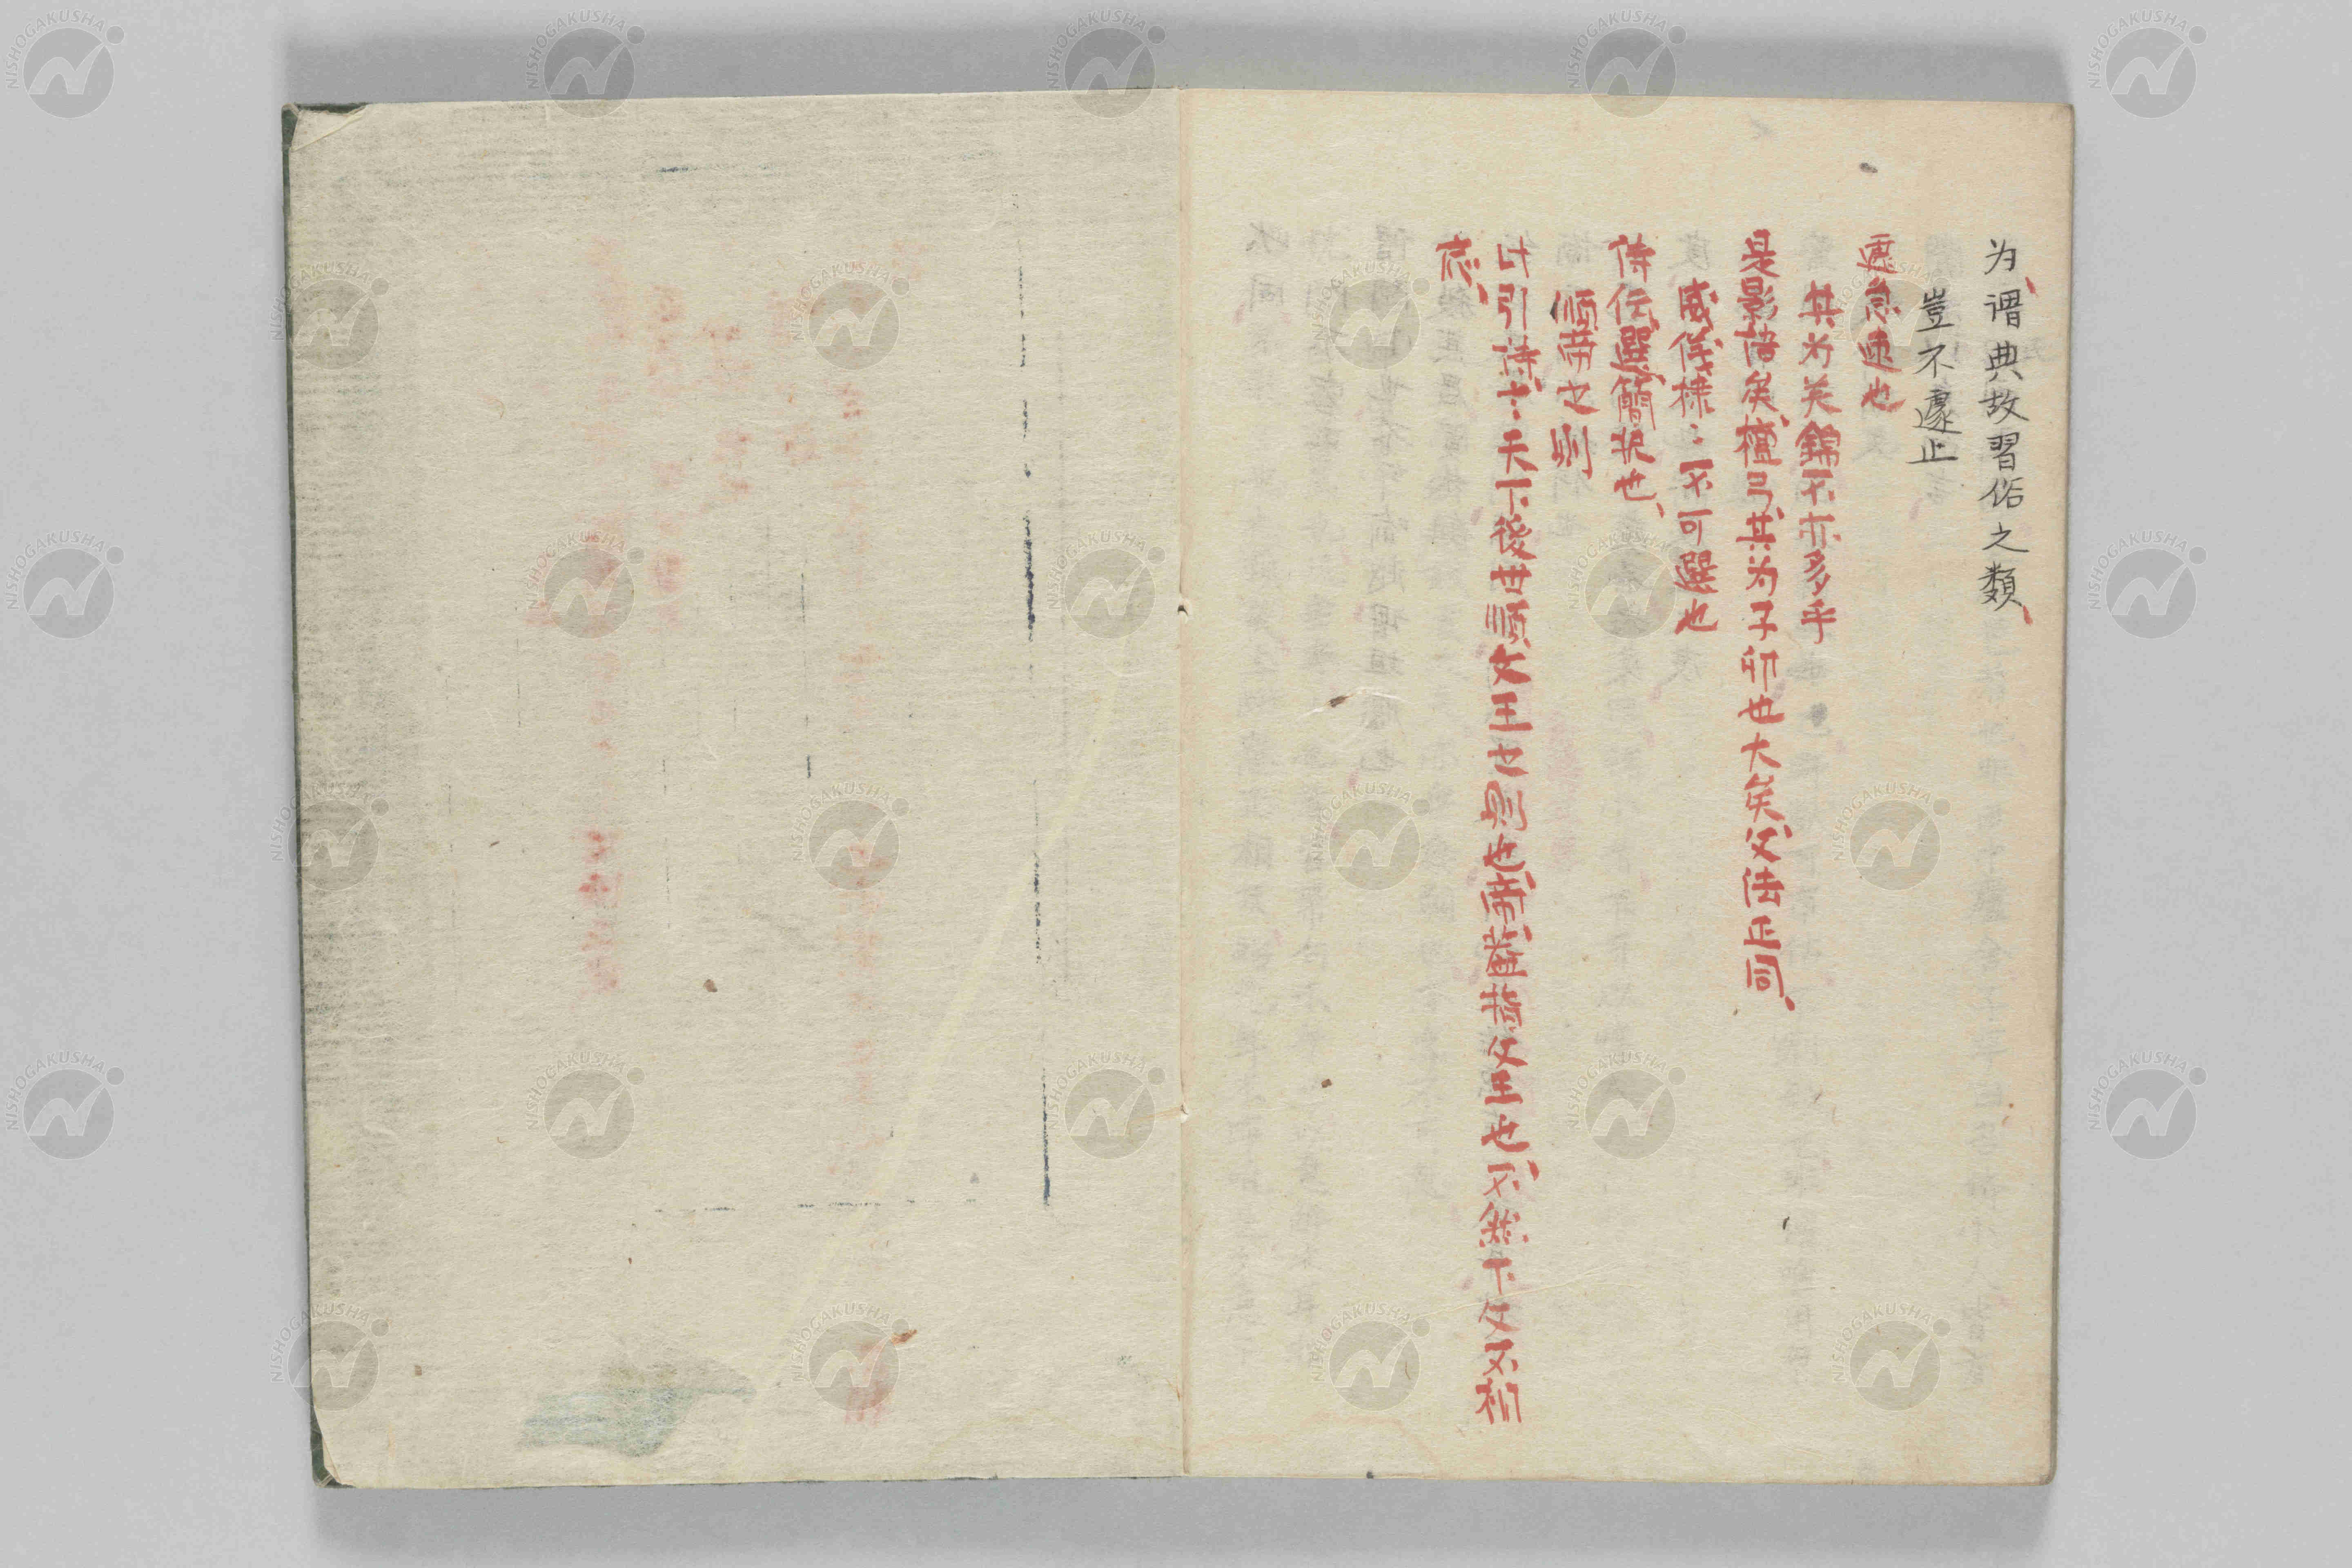 为谮典故習俗之類
豈不遽止
遽急速也
其为美錦不亦多乎
是影語矣檀弓其为子卯也大矣父法正同
威儀棣〻不可選也
侍伝選簡択也
順帝之則
此引詩言天下後世順文王之則也帝蓋指文王也不然下文不相
応
NISHOGAKUSHA